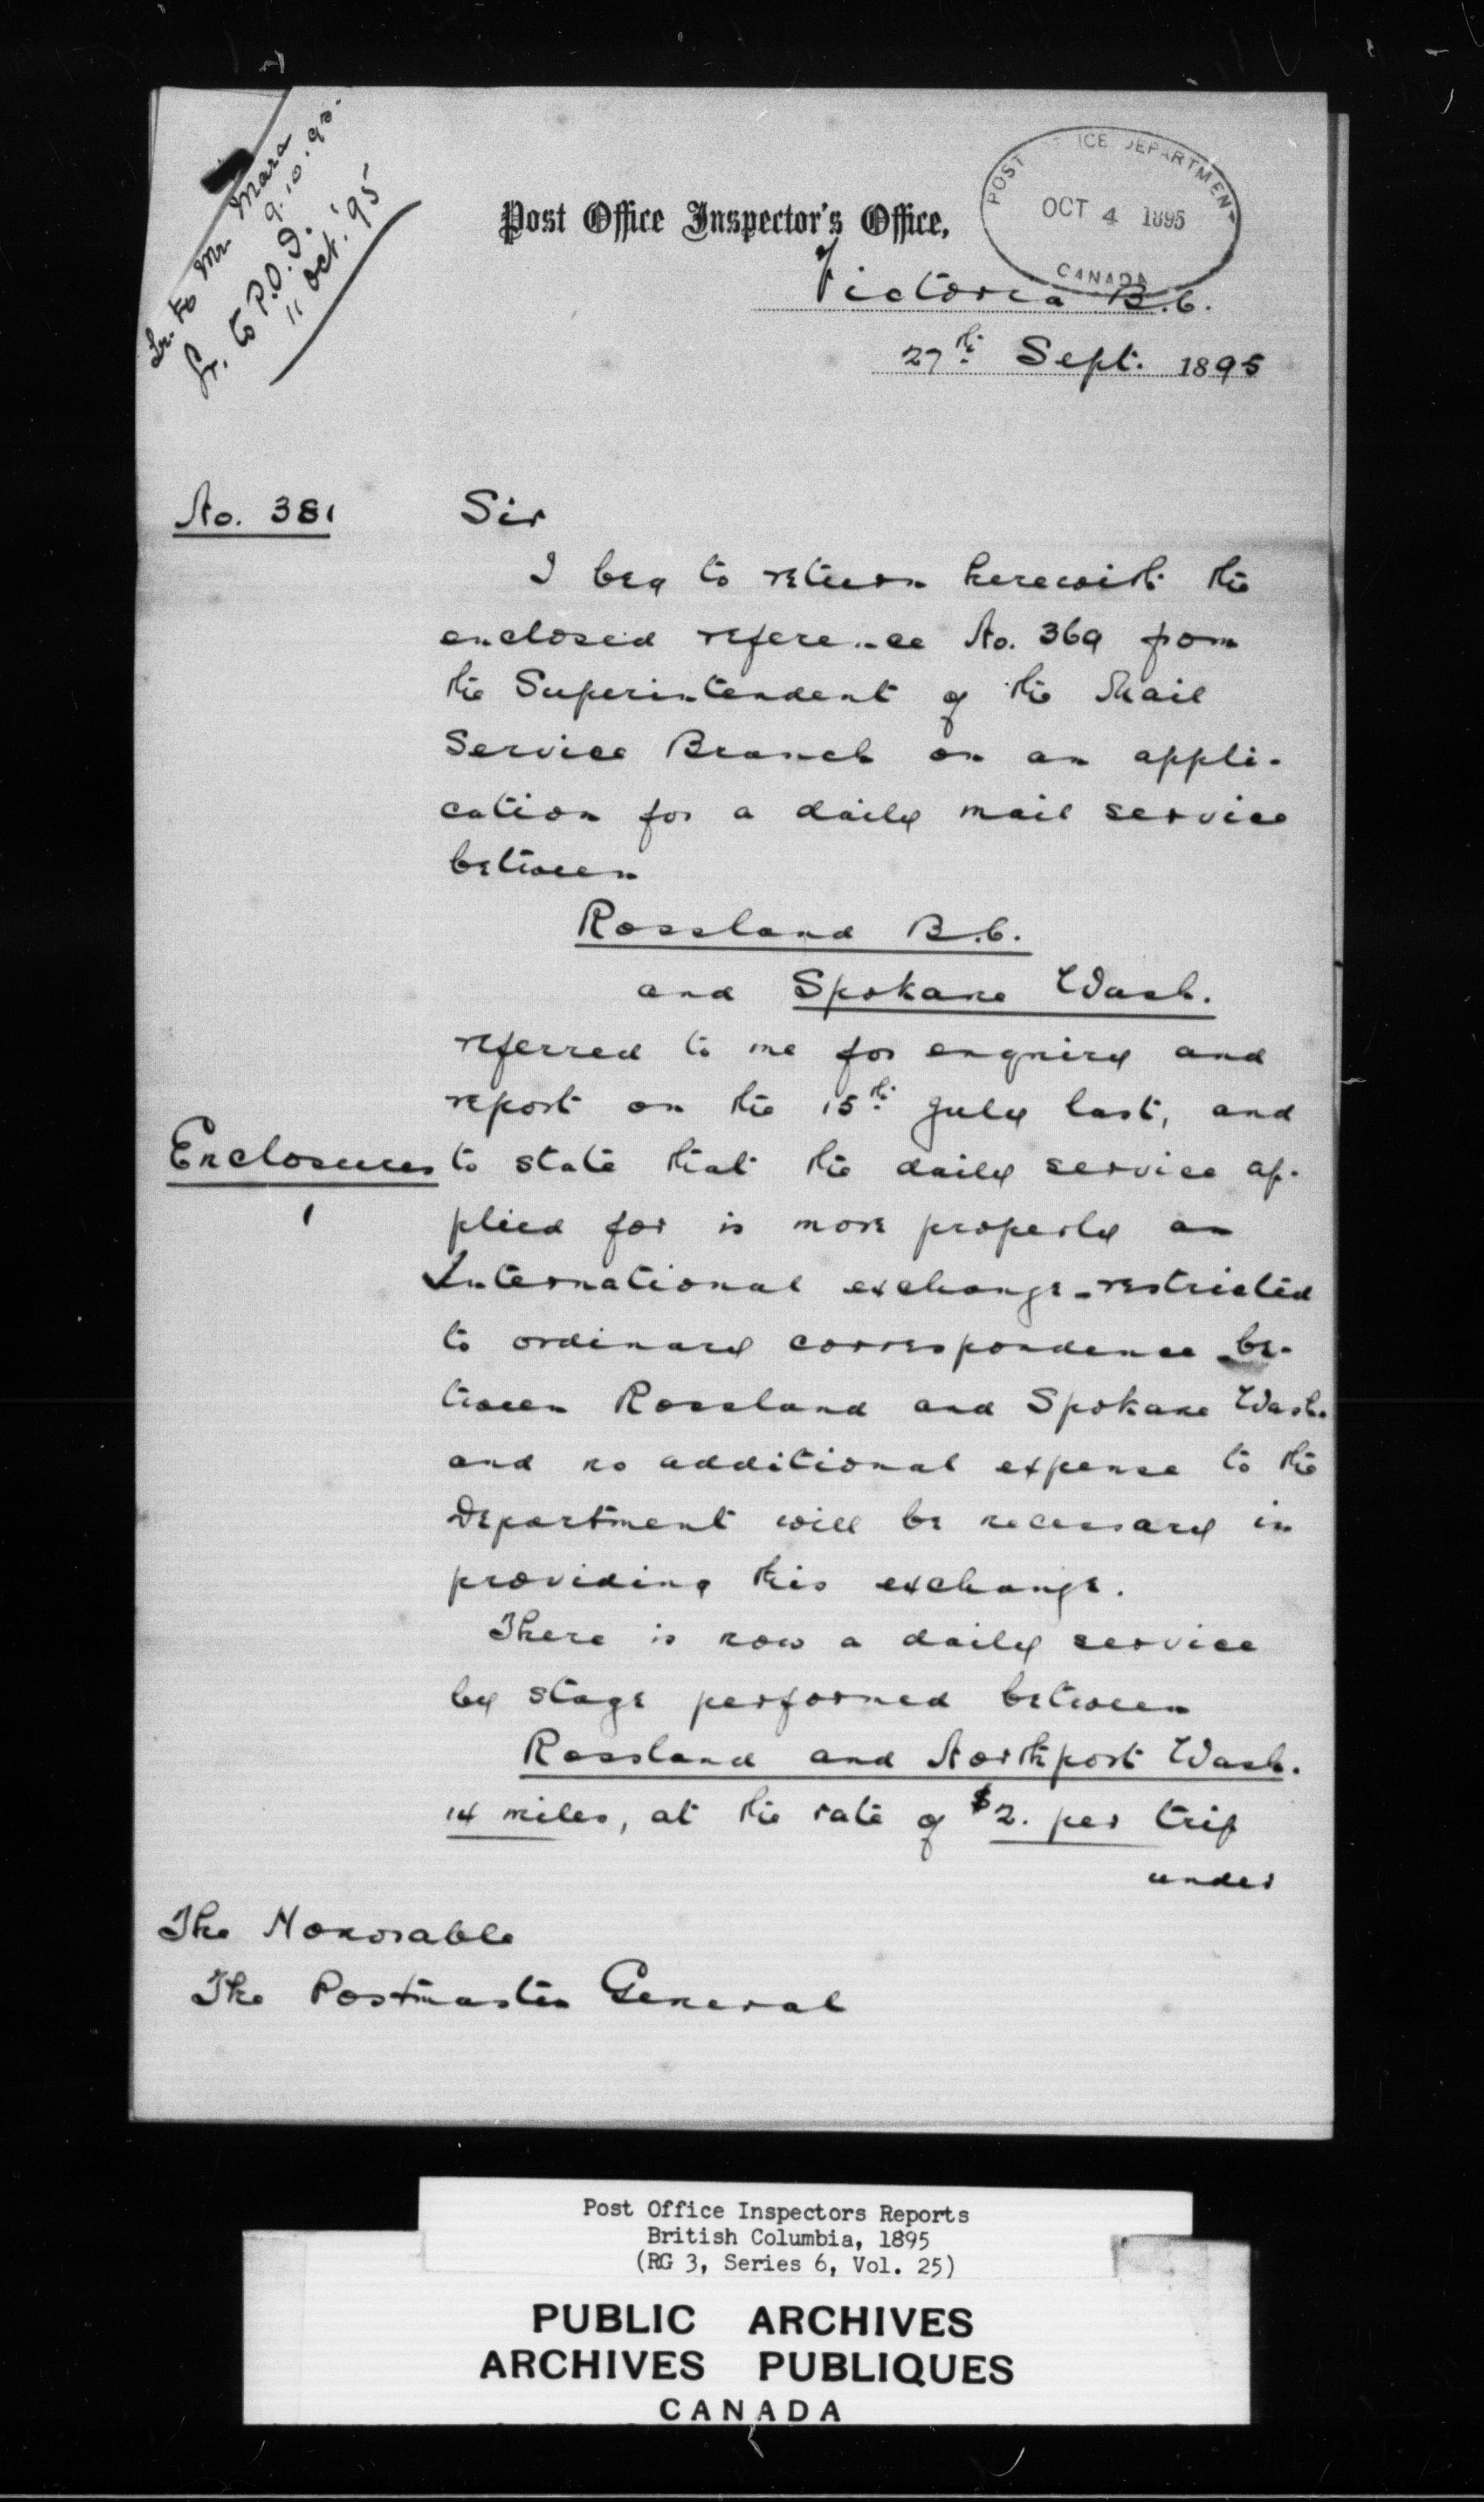 Lr. to Mr Mara
9.10.95.
Lr. to P.O.D.
11 Oct. '95
POST OFFICE DEPARTMENT
OCT 4 1895
CANADA
Post Office Inspector's Office,
Victoria B.C.
27th Sept. 1895
No. 381
Sir
I beg to return herewith the
enclosed reference No. 369 from
the Superintendent of the Mail
Service Branch on an appli-
cation for a daily mail service
between
Rossland B.C.
and Spokane Wash.
referred to me for enquiry and
report on the 15th July last, and
Enclosures
1
to state that the daily service ap-
plied for is more properly an
International exchange - restricted
to ordinary correspondence be-
tween Rossland and Spokane Wash.
and no additional expense to the
Department will be necessary in
providing this exchange.
There is now a daily service
by stage performed between
Rossland and Northport Wash.
14 miles, at the rate of $2. per trip
under
The Honorable
The Postmaster General
Post Office Inspectors Reports
British Columbia, 1895
(RG 3, Series 6, Vol. 25)
PUBLIC ARCHIVES
ARCHIVES PUBLIQUES
CANADA